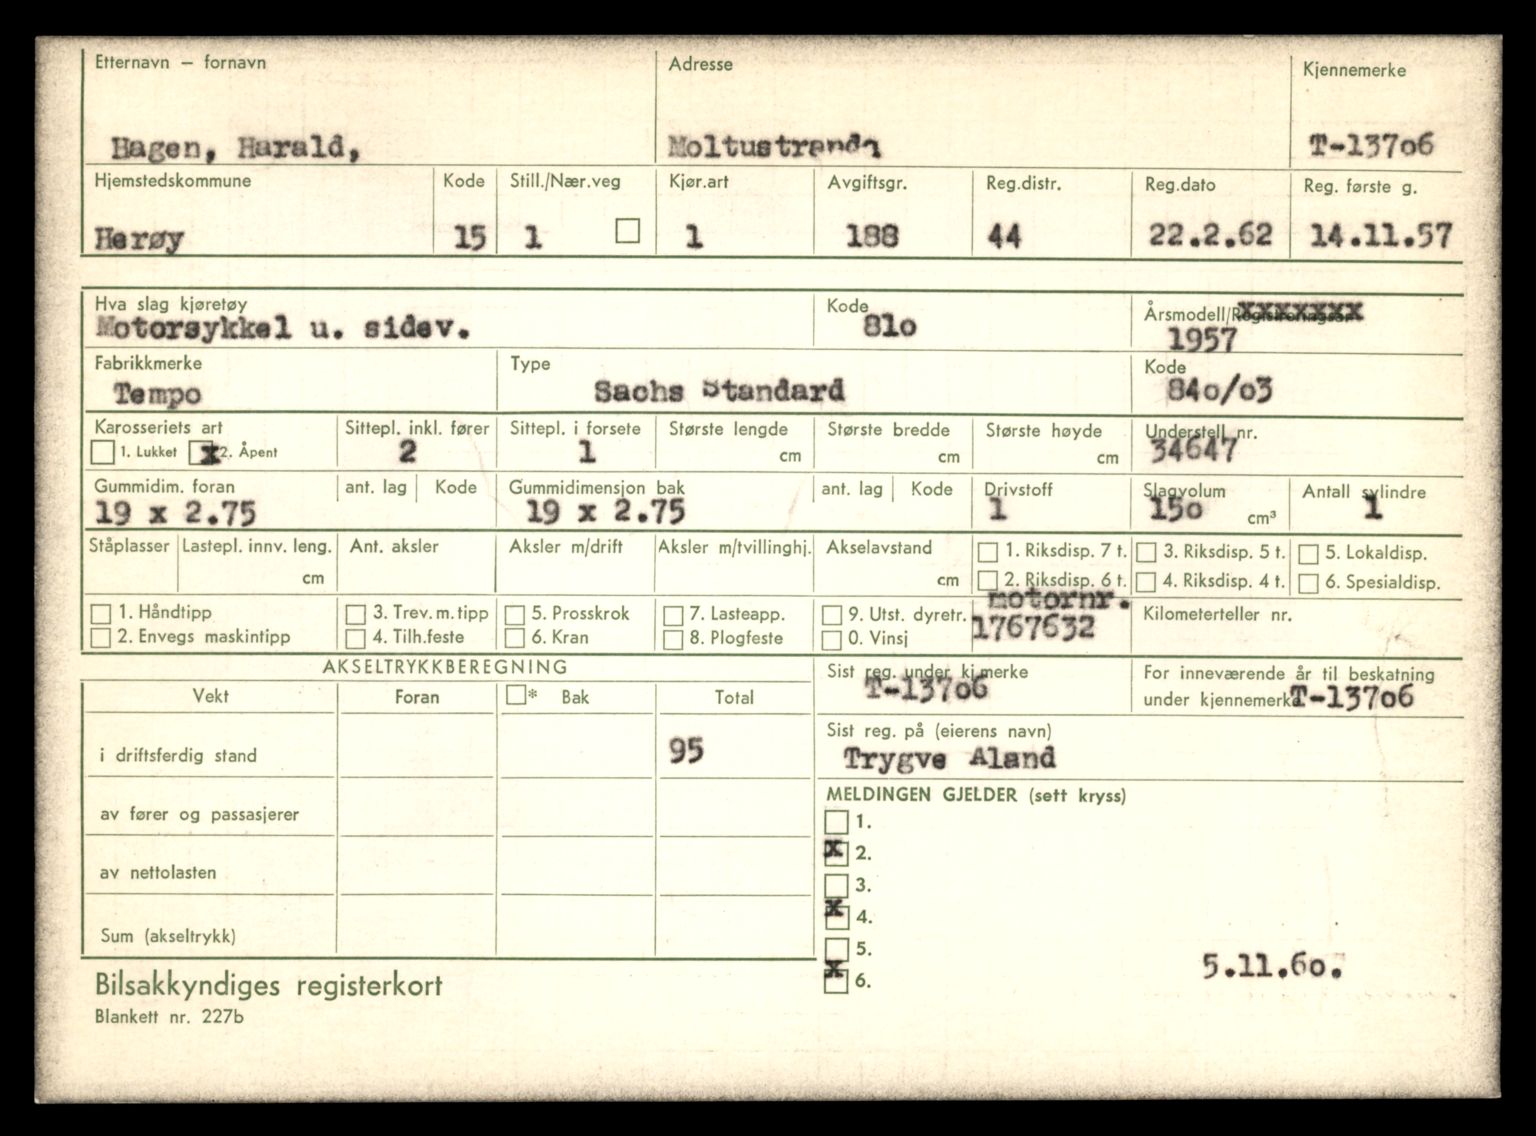 Etternavn – fornavn Adresse Kjennemerke
Hagen, Harald, Moltustranda T-137o6
Hjemstedskommune Kode Still./Nær.veg Kjør.art Avgiftsgr. Reg.distr. Reg.dato Reg. første g.
Herøy 15 1 1 188 44 22.2.62 14.11.57
Hva slag kjøretøy Kode Årsmodell/Registreringsår xxxxxxx
Motorsykkel u. sidev. 81o 1957
Fabrikkmerke Type Kode
Tempo Sachs Standard 84o/o3
Karosseriets art Sittepl. inkl. fører Sittepl. i forsete Største lengde Største bredde Største høyde Understell nr.
1. Lukket x 2. Åpent 2 1 cm cm cm 34647
Gummidim. foran ant. lag Kode Gummidimensjon bak ant. lag Kode Drivstoff Slagvolum Antall sylindre
19 x 2.75 19 x 2.75 1 15o cm³ 1
Ståplasser Lastepl. innv. leng. Ant. aksler Aksler m/drift Aksler m/tvillinghj. Akselavstand 1. Riksdisp. 7 t. 3. Riksdisp. 5 t. 5. Lokaldisp.
cm cm 2. Riksdisp. 6 t. 4. Riksdisp. 4 t. 6. Spesialdisp.
1. Håndtipp 3. Trev.m.tipp 5. Prosskrok 7. Lasteapp. 9. Utst. dyretr. motornr. Kilometerteller nr.
2. Envegs maskintipp 4. Tilh.feste 6. Kran 8. Plogfeste 0. Vinsj 1767632
AKSELTRYKKBEREGNING Sist reg. under kj.merke For inneværende år til beskatning
Vekt Foran * Bak Total T-137o6 under kjennemerke T-137o6
Sist reg. på (eierens navn)
i driftsferdig stand 95 Trygve Aland
MELDINGEN GJELDER (sett kryss)
av fører og passasjerer 1.
x 2.
av nettolasten 3.
x 4.
Sum (akseltrykk) 5.
x 6. 5.11.6o.
Bilsakkyndiges registerkort
Blankett nr. 227b